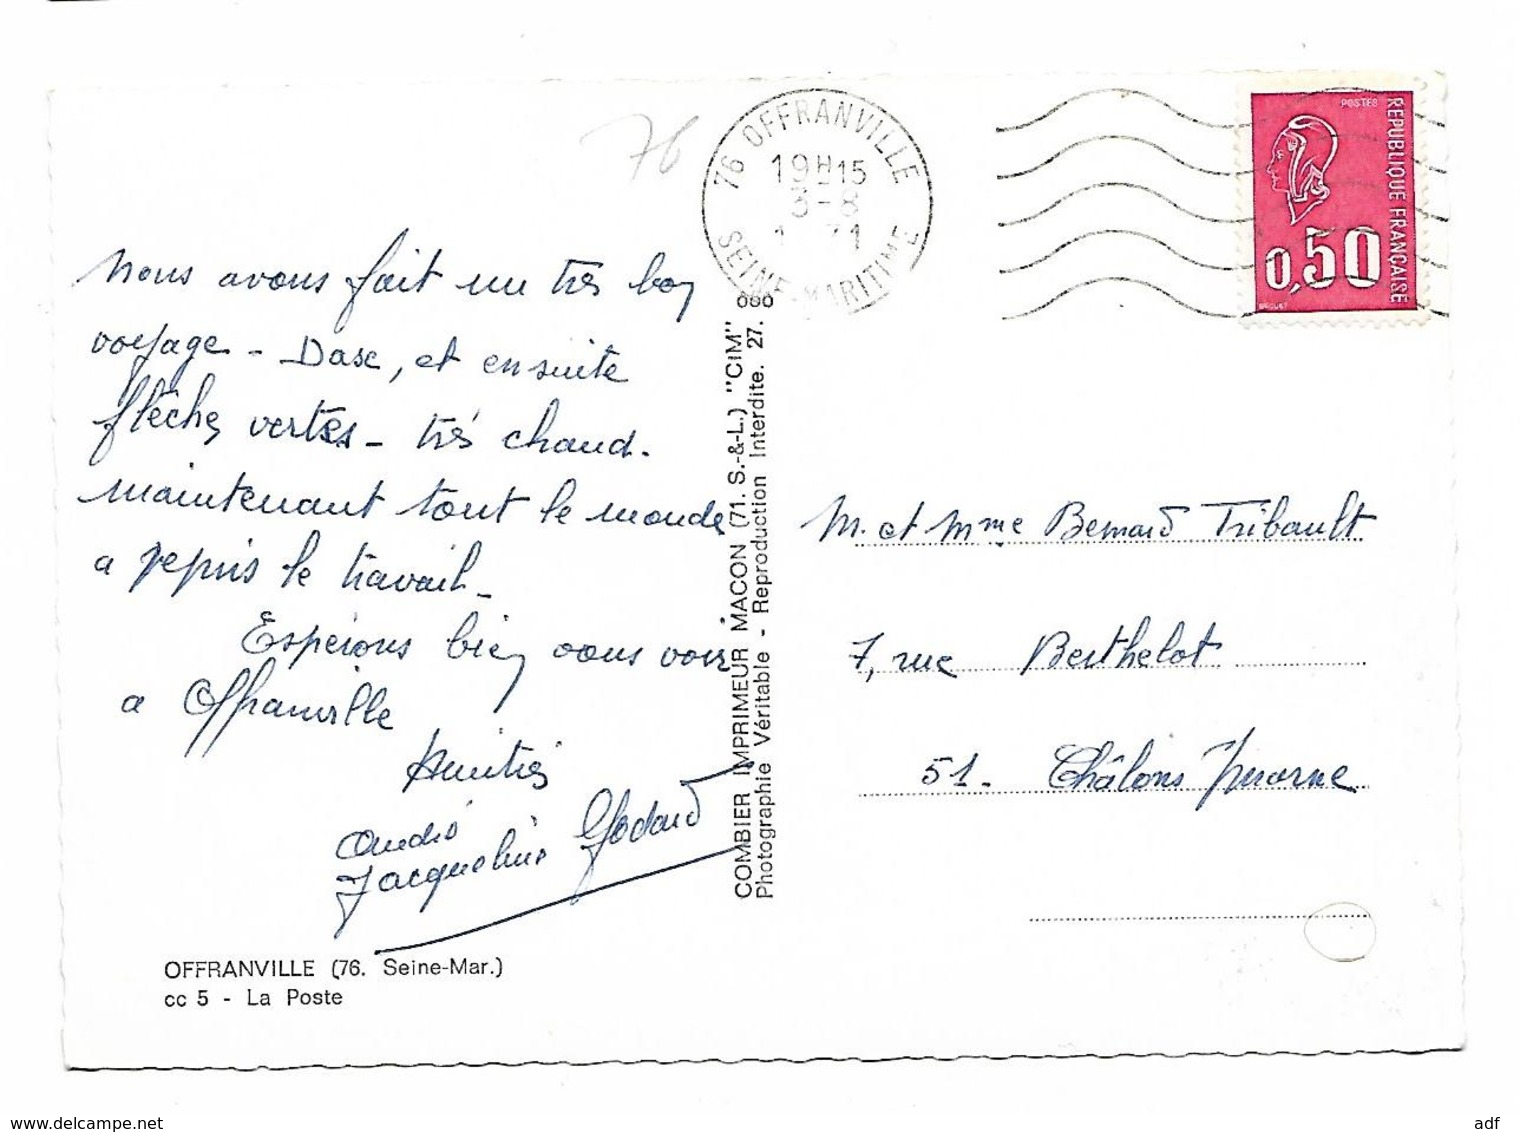 76
76 OFFRANVILLE
19H15
3-8
SEINE-MARITIME
POSTES
REPUBLIQUE FRANÇAISE
0,50
Nous avons fait un très bon
voyage - Dax, et ensuite
flèches vertes - très chaud.
maintenant tout le monde
a repris le travail -
Espérons bien vous voir
a Offranville
Amitiés
André
Jacqueline Godard
OFFRANVILLE (76. Seine-Mar.)
cc 5 - La Poste
COMBIER IMPRIMEUR MACON (71. S.-&-L.) "CIM"
Photographie Véritable - Reproduction Interdite. 27.
M. et Mme Bernard Tribault
7, rue Berthelot
51 - Châlons s/ marne
www.delcampe.net
adf